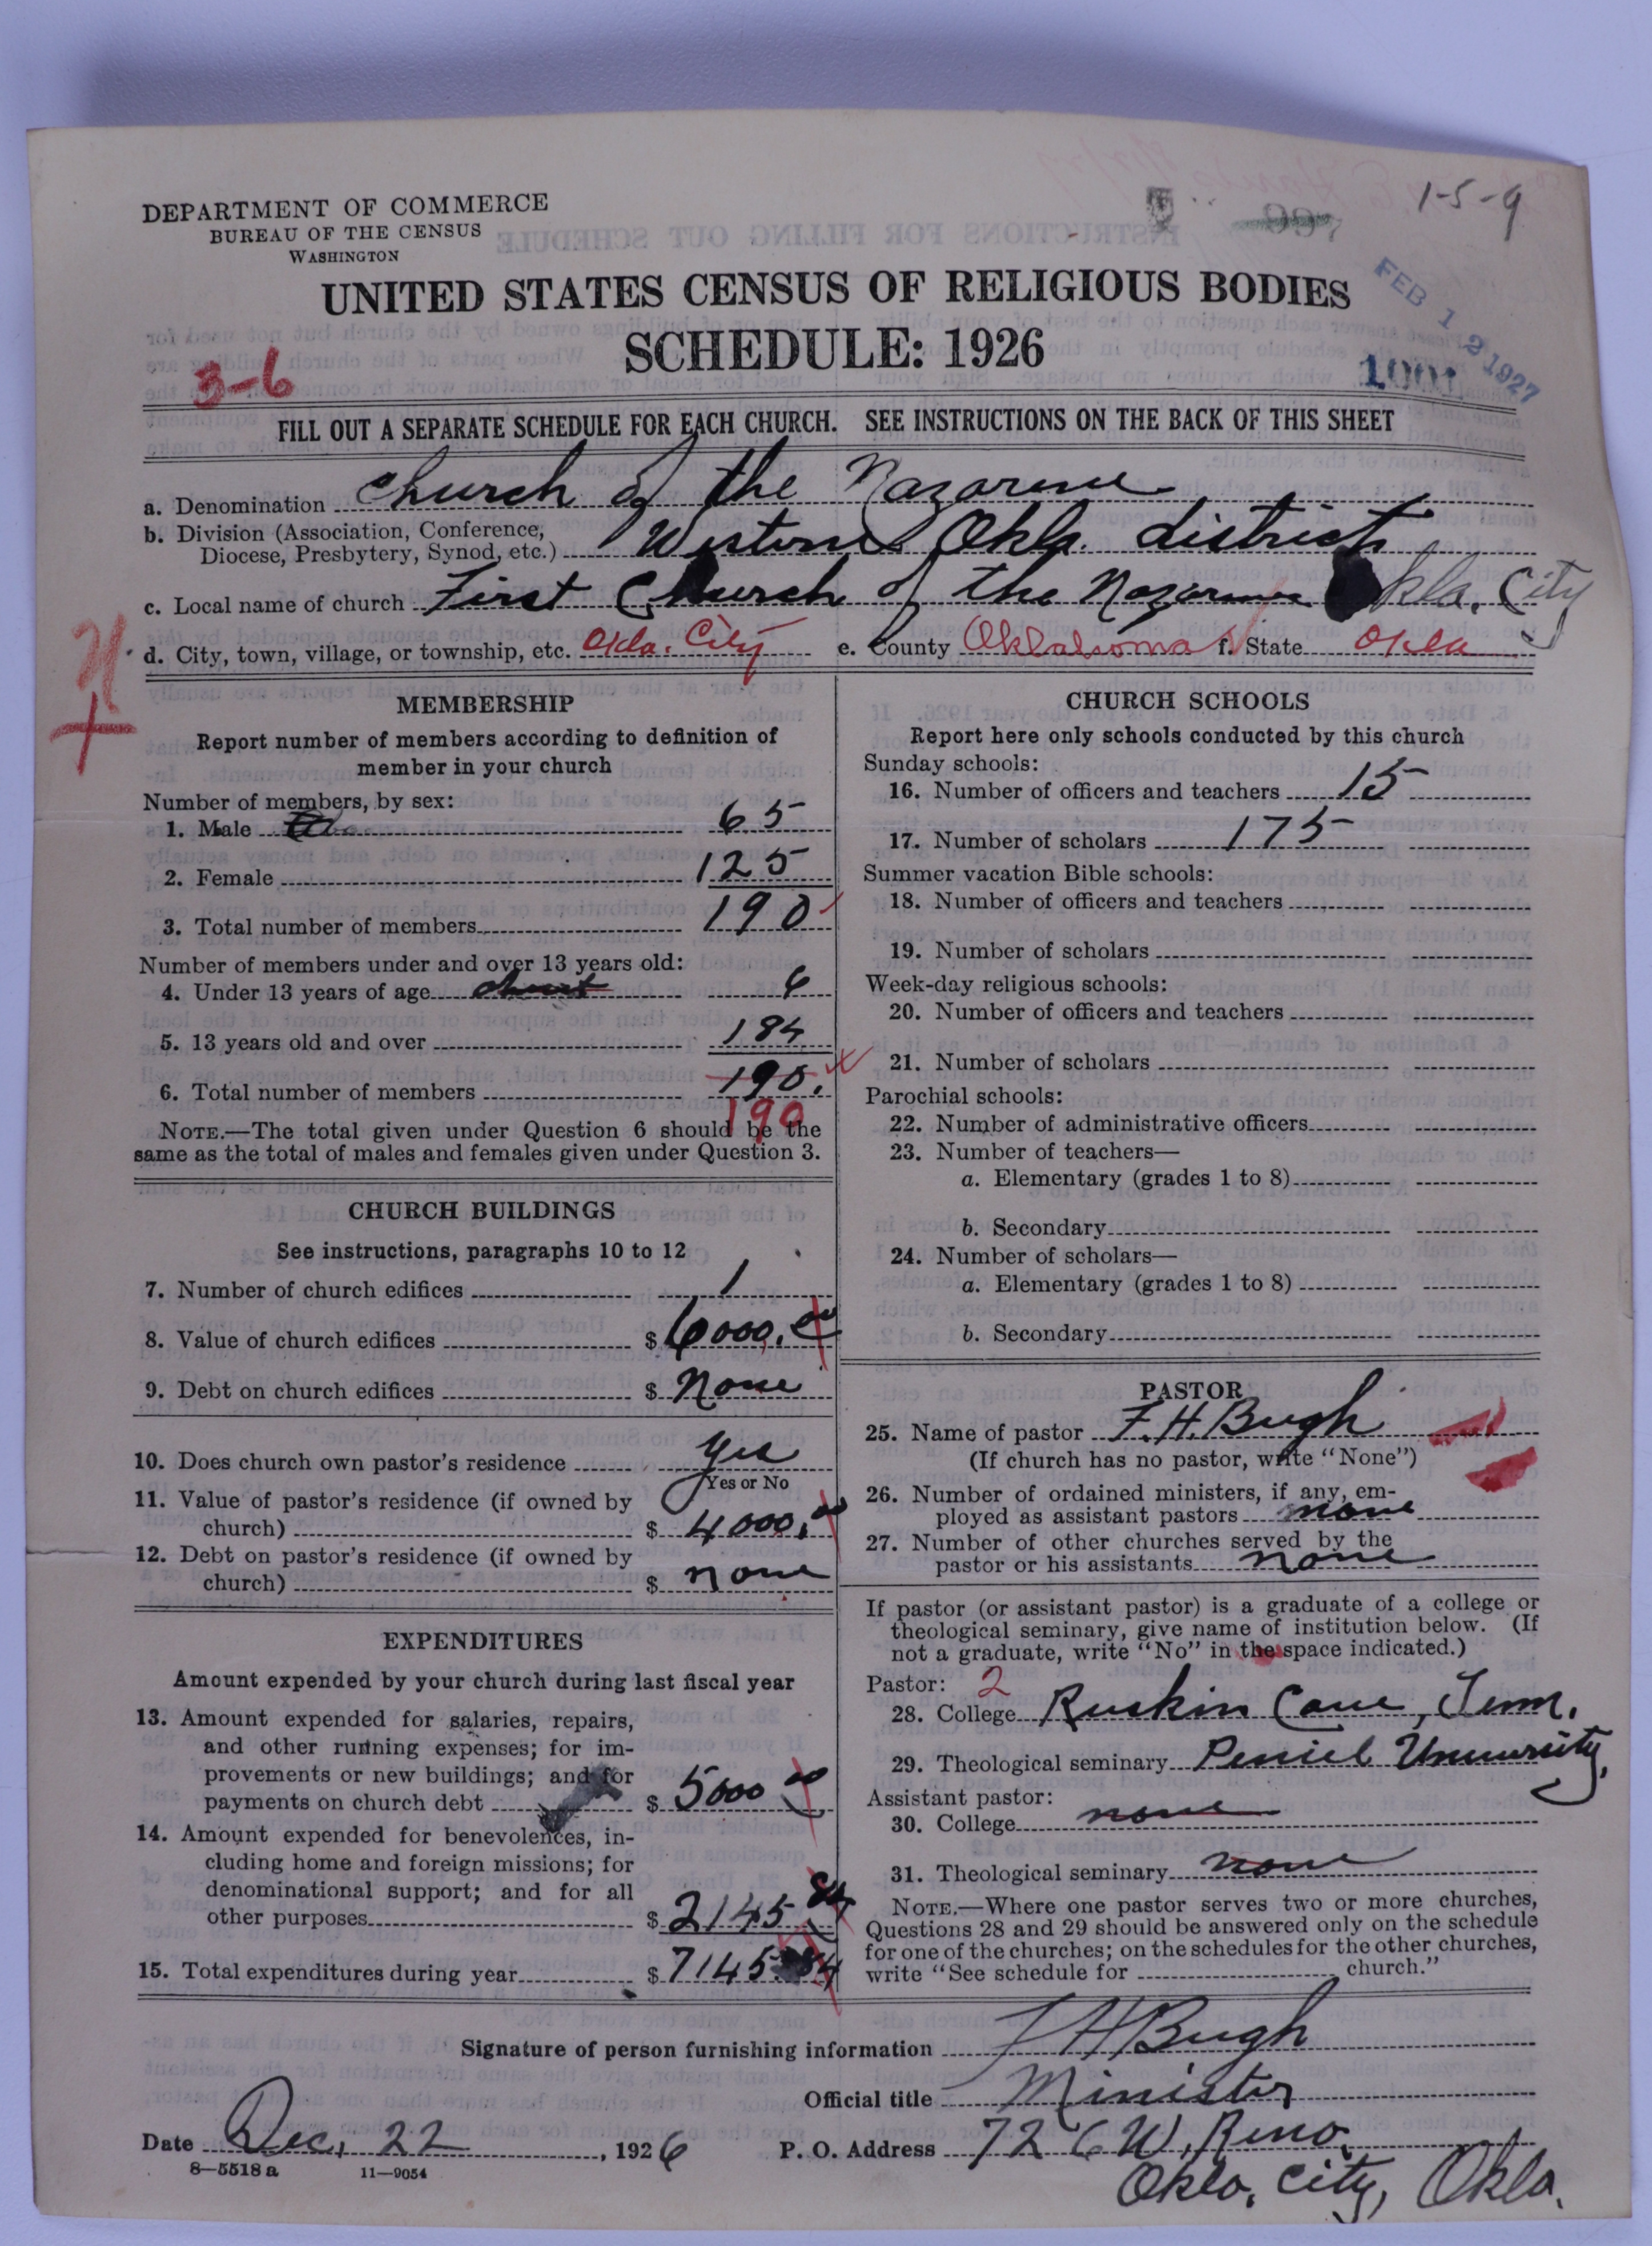 1-5-9
DEPARTMENT OF COMMERCE
BUREAU OF THE CENSUS
WASHINGTON
UNITED STATES CENSUS OF RELIGIOUS BODIES
SCHEDULE: 1926
FEB 12 1927
1001
3-6
FILL OUT A SEPARATE SCHEDULE FOR EACH CHURCH. SEE INSTRUCTIONS ON THE BACK OF THIS SHEET
a. Denomination Church of the Nazarene
b. Division (Association, Conference,
Diocese, Presbytery, Synod, etc.) Western Okla. district
c. Local name of church First Church of the Nazarene Okla. City
d. City, town, village, or township, etc. Okla. City e. County Oklahoma f. State Okla
MEMBERSHIP
Report number of members according to definition of
member in your church
Number of members, by sex:
1. Male 65
2. Female 125
3. Total number of members 190
Number of members under and over 13 years old:
4. Under 13 years of age 6
5. 13 years old and over 184
6. Total number of members 190.
190
NOTE.—The total given under Question 6 should be the
same as the total of males and females given under Question 3.
CHURCH BUILDINGS
See instructions, paragraphs 10 to 12
7. Number of church edifices 1
8. Value of church edifices $ 6000.00
9. Debt on church edifices $ None
10. Does church own pastor's residence Yes
Yes or No
11. Value of pastor's residence (if owned by
church) $ 4000.00
12. Debt on pastor's residence (if owned by
church) $ none
EXPENDITURES
Amount expended by your church during last fiscal year
13. Amount expended for salaries, repairs,
and other running expenses; for im-
provements or new buildings; and for
payments on church debt $ 5000 00
14. Amount expended for benevolences, in-
cluding home and foreign missions; for
denominational support; and for all
other purposes $ 2145 84
15. Total expenditures during year $ 7145.84
CHURCH SCHOOLS
Report here only schools conducted by this church
Sunday schools:
16. Number of officers and teachers 15
17. Number of scholars 175
Summer vacation Bible schools:
18. Number of officers and teachers
19. Number of scholars
Week-day religious schools:
20. Number of officers and teachers
21. Number of scholars
Parochial schools:
22. Number of administrative officers
23. Number of teachers—
a. Elementary (grades 1 to 8)
b. Secondary
24. Number of scholars—
a. Elementary (grades 1 to 8)
b. Secondary
PASTOR
25. Name of pastor F. H. Bugh
(If church has no pastor, write "None")
26. Number of ordained ministers, if any, em-
ployed as assistant pastors none
27. Number of other churches served by the
pastor or his assistants none
If pastor (or assistant pastor) is a graduate of a college or
theological seminary, give name of institution below. (If
not a graduate, write "No" in the space indicated.)
Pastor: 2
28. College Ruskin Cave, Tenn.
29. Theological seminary Peniel University.
Assistant pastor:
30. College none
31. Theological seminary none
NOTE.—Where one pastor serves two or more churches,
Questions 28 and 29 should be answered only on the schedule
for one of the churches; on the schedules for the other churches,
write "See schedule for church."
Signature of person furnishing information F H Bugh
Official title Minister
Date Dec. 22, 1926 P. O. Address 726 W. Reno.
8—5518 a 11—9054
Okla. City, Okla.